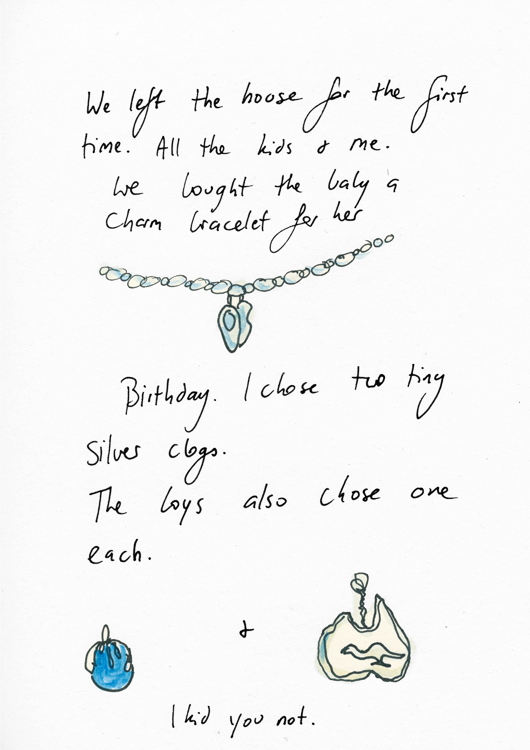 We left the house for the first
time. All the kids & me.
We bought the baby a
Charm bracelet for her
Birthday. I chose two tiny
Silver clogs.
The boys also chose one
each.
&
I kid you not.